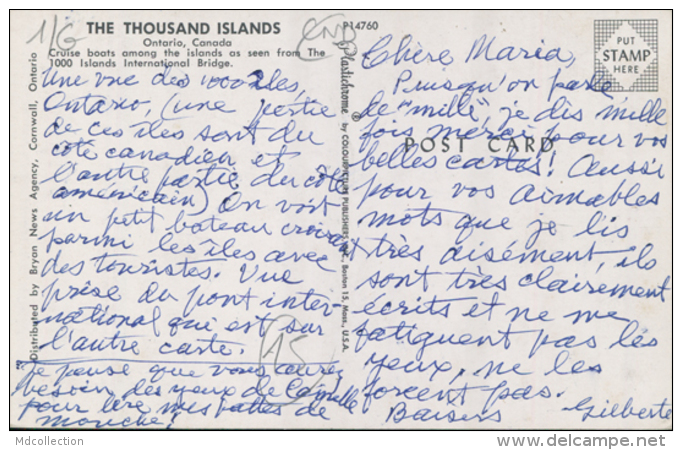 THE THOUSAND ISLANDS
Ontario, Canada
Cruise boats among the islands as seen from The
1000 Islands International Bridge.
P14760
PUT
STAMP
HERE
POST CARD
Distributed by Bryan News Agency, Cornwall, Ontario
Plastichrome ® by COLOURPICTURE PUBLISHERS, INC., Boston 15, Mass., U.S.A.
1/G
CND
15
Une vue des 1000 Iles,
Ontario, (une partie
de ces îles sont du
côté canadien et
l'autre partie du côté
américain) On voit
un petit bateau croisant
parmi les îles avec
des touristes. Vue
prise du pont inter-
national qui est sur
l'autre carte.
Je pense que vous aurez
besoin des yeux de Camille
pour lire mes pattes de
mouche!
Chère Maria,
Puisqu'on parle
de "mille", je dis mille
fois merci pour vos
belles cartes! Aussi
pour vos aimables
mots que je lis
très aisément, ils
sont très clairement
écrits et ne me
fatiguent pas les
yeux, ne les
forcent pas.
Baisers Gilberte
Mdcollection